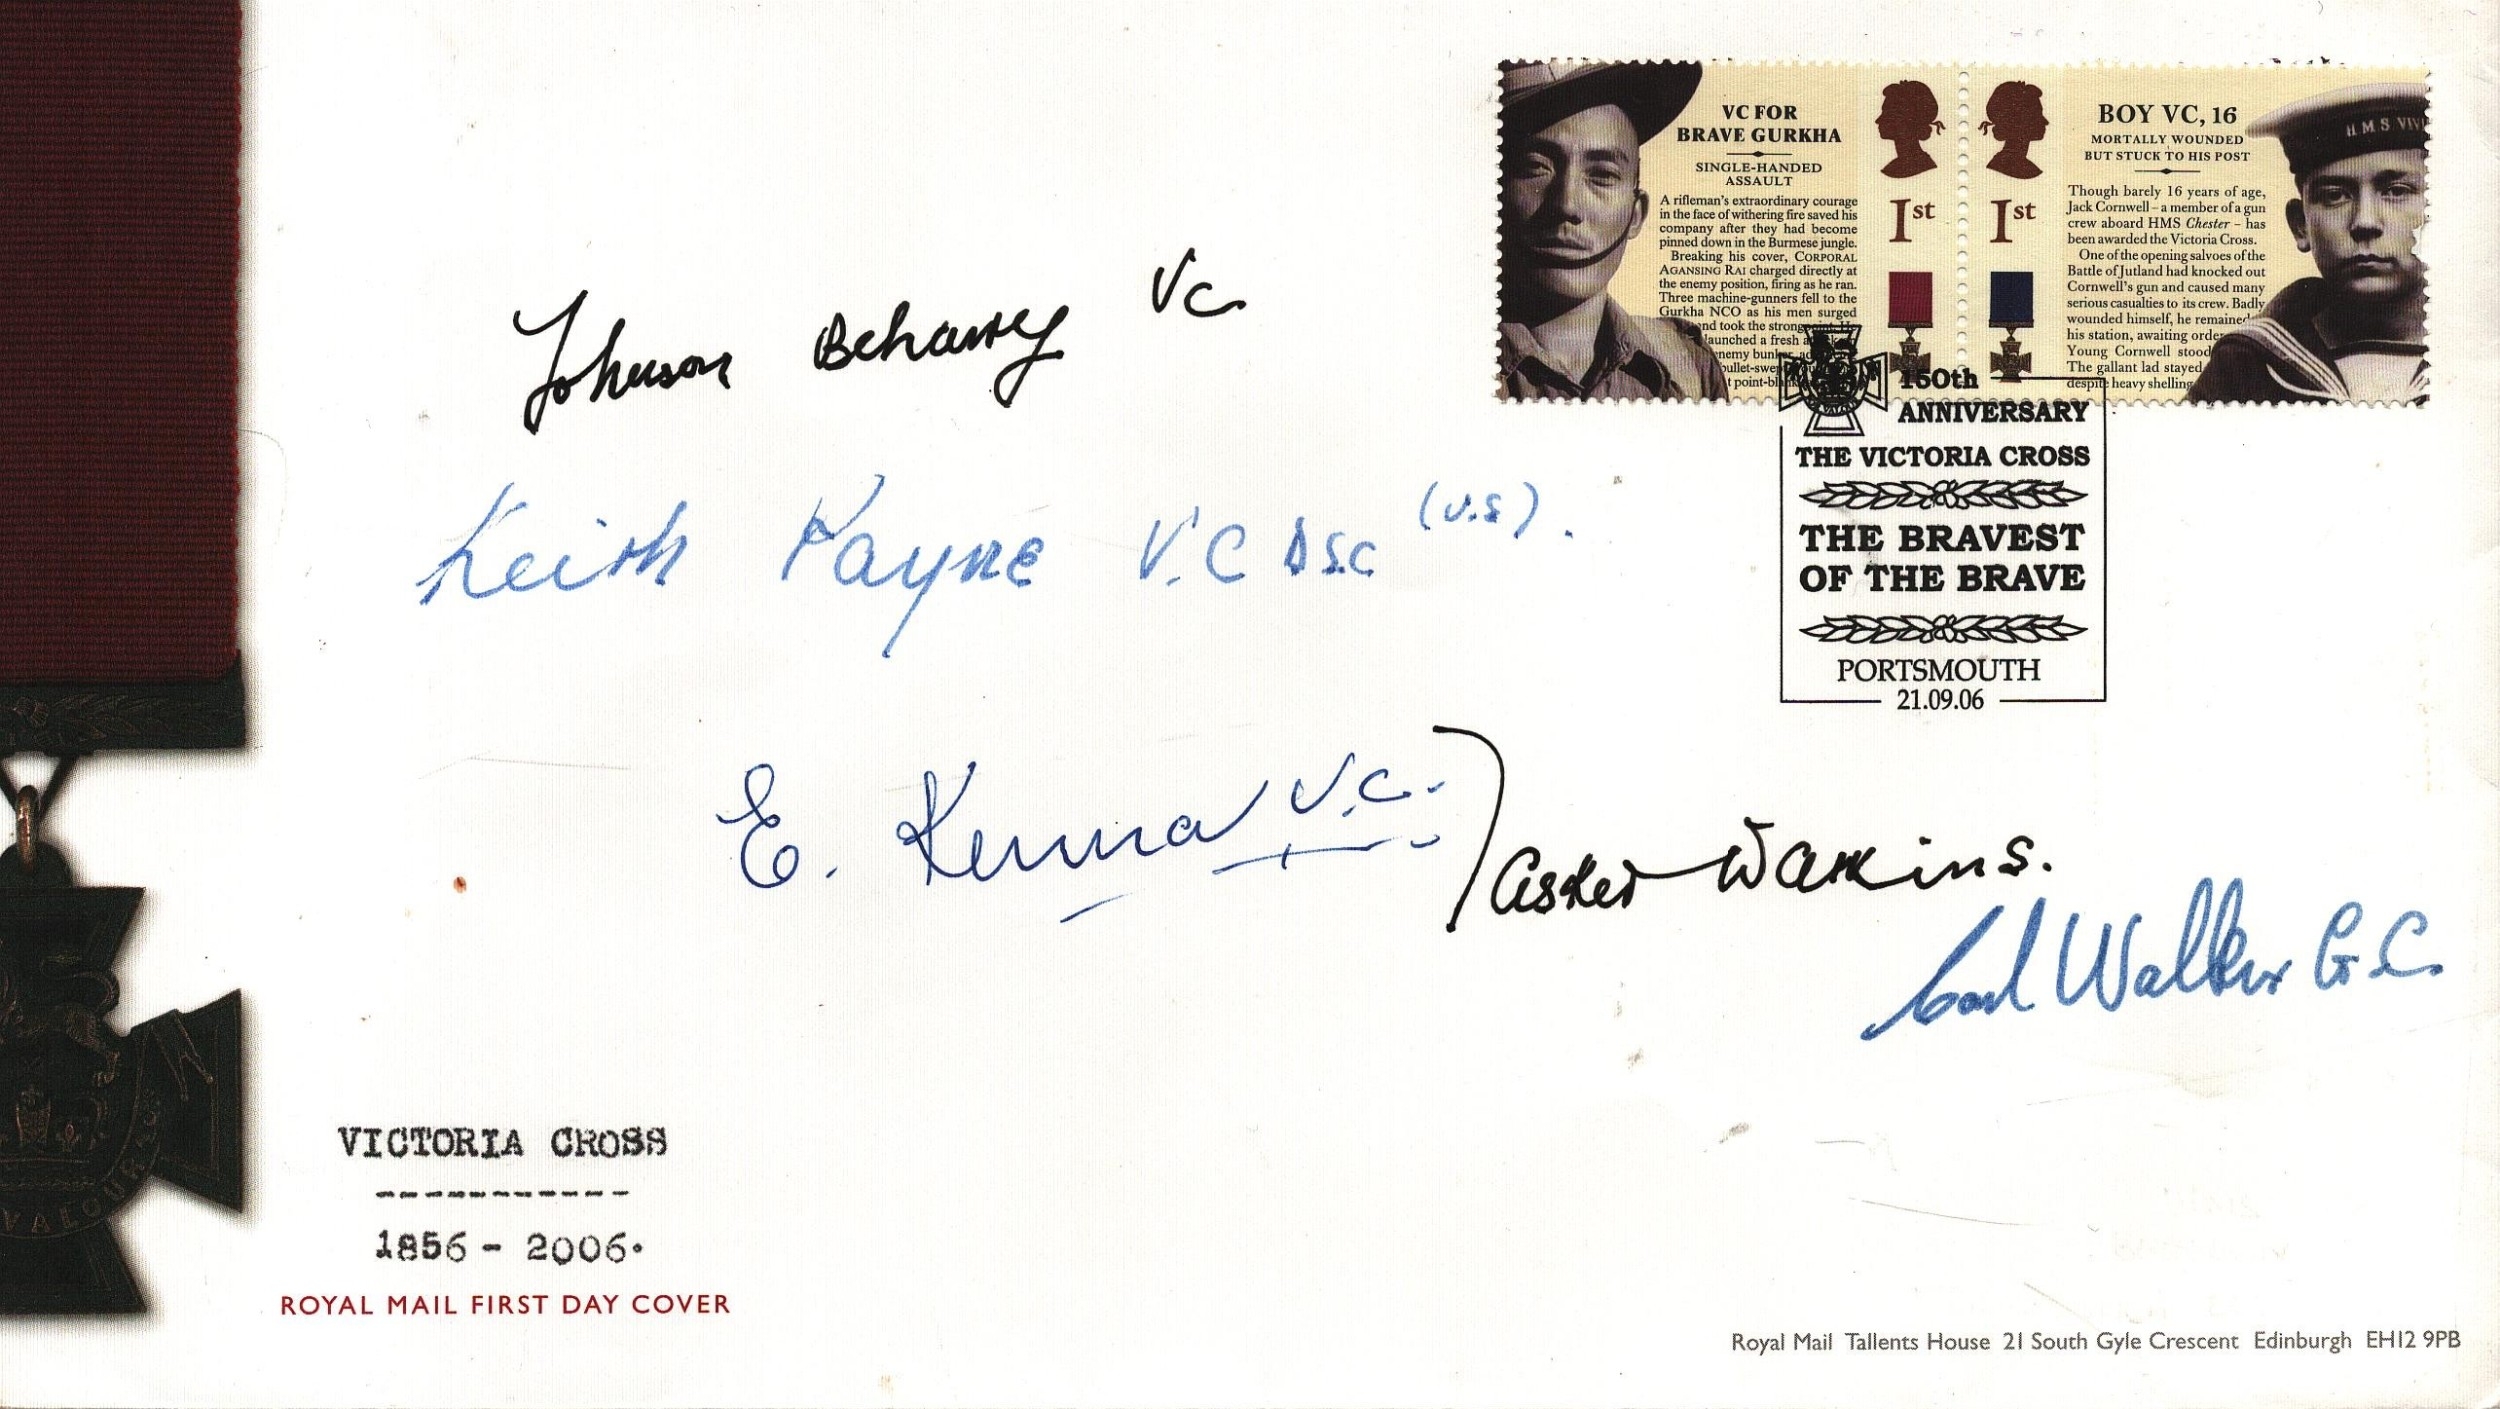 VC FOR
BRAVE GURKHA
SINGLE-HANDED
ASSAULT
A rifleman's extraordinary courage
in the face of withering fire saved his
company after they had become
pinned down in the Burmese jungle.
Breaking his cover, CORPORAL
AGANSING RAI charged directly at
the enemy position, firing as he ran.
Three machine-gunners fell to the
Gurkha NCO as his men surged
and took the strong
launched a fresh
enemy bunker
bullet-swept
t point-bla
1st
1st
BOY VC, 16
MORTALLY WOUNDED
BUT STUCK TO HIS POST
Though barely 16 years of age,
Jack Cornwell – a member of a gun
crew aboard HMS Chester – has
been awarded the Victoria Cross.
One of the opening salvoes of the
Battle of Jutland had knocked out
Cornwell's gun and caused many
serious casualties to its crew. Badly
wounded himself, he remained
his station, awaiting order
Young Cornwell stood
The gallant lad stayed
despite heavy shelling
H M S VIVI
150th
ANNIVERSARY
THE VICTORIA CROSS
THE BRAVEST
OF THE BRAVE
PORTSMOUTH
21.09.06
Johnson Beharry VC
Keith Payne V.C DSC (U.S).
E. Kenna V.C.
Tasker Watkins.
Carl Walker G.C.
VALOUR
VICTORIA CROSS
-----------
1856 - 2006.
ROYAL MAIL FIRST DAY COVER
Royal Mail Tallents House 21 South Gyle Crescent Edinburgh EH12 9PB